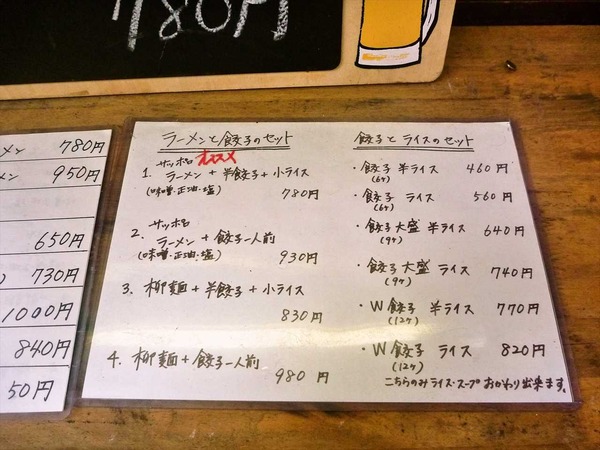 780円
メン 780円
メン 950円
650円
730円
1000円
840円
50円
ラーメンと餃子のセット
サッポロ オススメ
1. ラーメン + 半餃子 + 小ライス
(味噌・正油・塩) 780円
サッポロ
2. ラーメン + 餃子一人前
(味噌・正油・塩) 930円
3. 柳麺 + 半餃子 + 小ライス
830円
4. 柳麺 + 餃子一人前
980円
餃子とライスのセット
・餃子 半ライス 460円
(6ケ)
・餃子 ライス 560円
(6ケ)
・餃子大盛 半ライス 640円
(9ケ)
・餃子大盛 ライス 740円
(9ケ)
・W餃子 半ライス 770円
(12ケ)
・W餃子 ライス 820円
(12ケ)
こちらのみライス・スープおかわり出来ます。